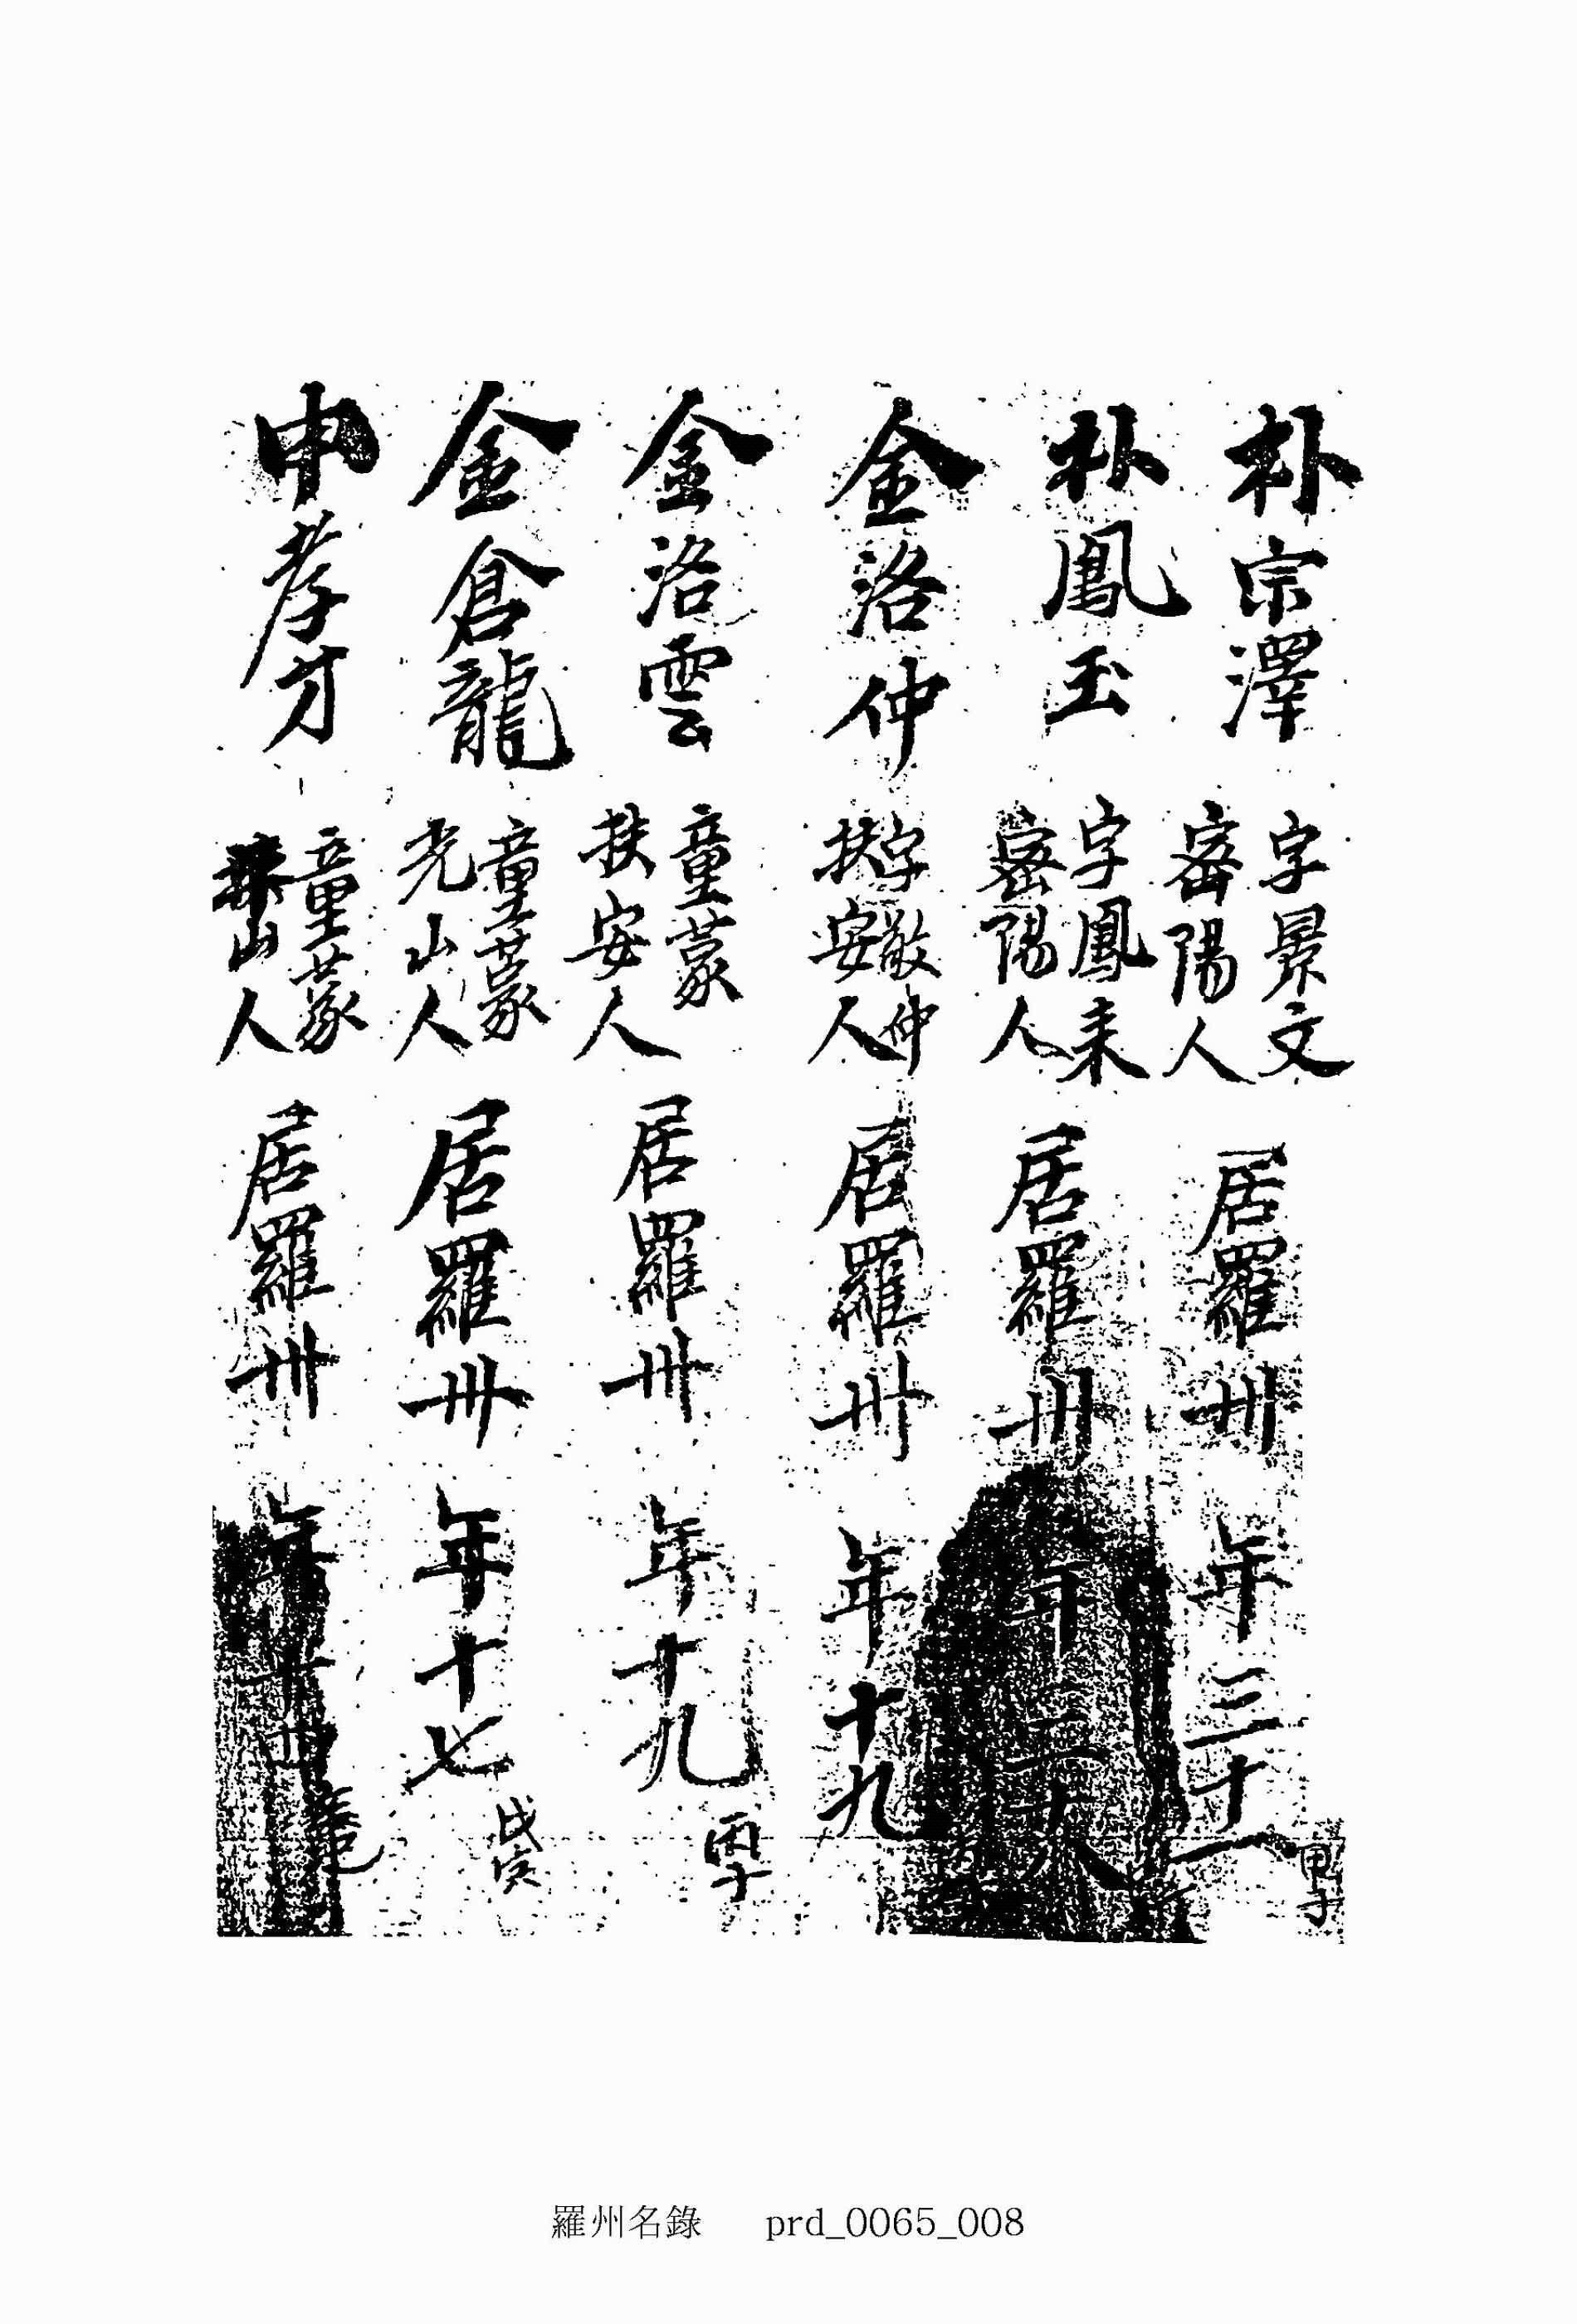 朴宗澤 字景文 密陽人 居羅州 年三十一 甲子
朴鳳玉 字鳳來 密陽人 居羅州 年二十八
金洛仲 字敬仲 扶安人 居羅州 年十九
金洛雲 童蒙 扶安人 居羅州 年十九 丙子
金倉龍 童蒙 光山人 居羅州 年十七 戊寅
申孝才 童蒙 山人 居羅州 年十
羅州名錄 prd_0065_008